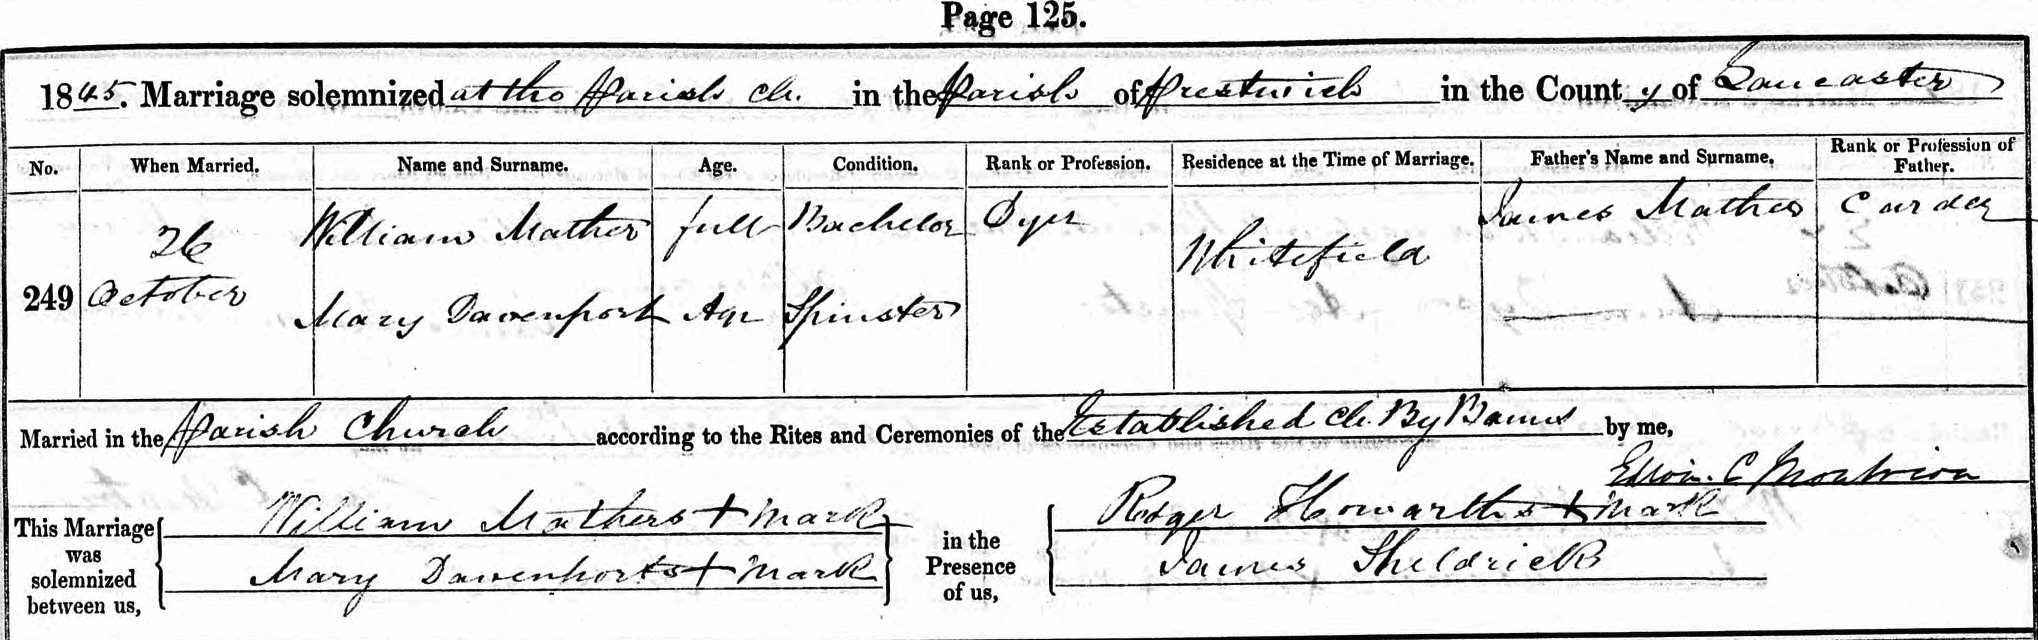 Page 125.
1845. Marriage solemnized at the Parish Ch. in the Parish of Prestwich in the County of Lancaster
No. When Married. Name and Surname. Age. Condition. Rank or Profession. Residence at the Time of Marriage. Father's Name and Surname. Rank or Profession of Father.
249 26 October William Mather full Bachelor Dyer Whitefield James Mather Carder
Mary Davenport Age Spinster
Married in the Parish Church according to the Rites and Ceremonies of the Established Ch. By Banns by me,
Edwin C
This Marriage was solemnized between us, William Mathers + Mark in the Presence of us, Roger Howarths + Mark
Mary Davenports + Mark James Sheldrick